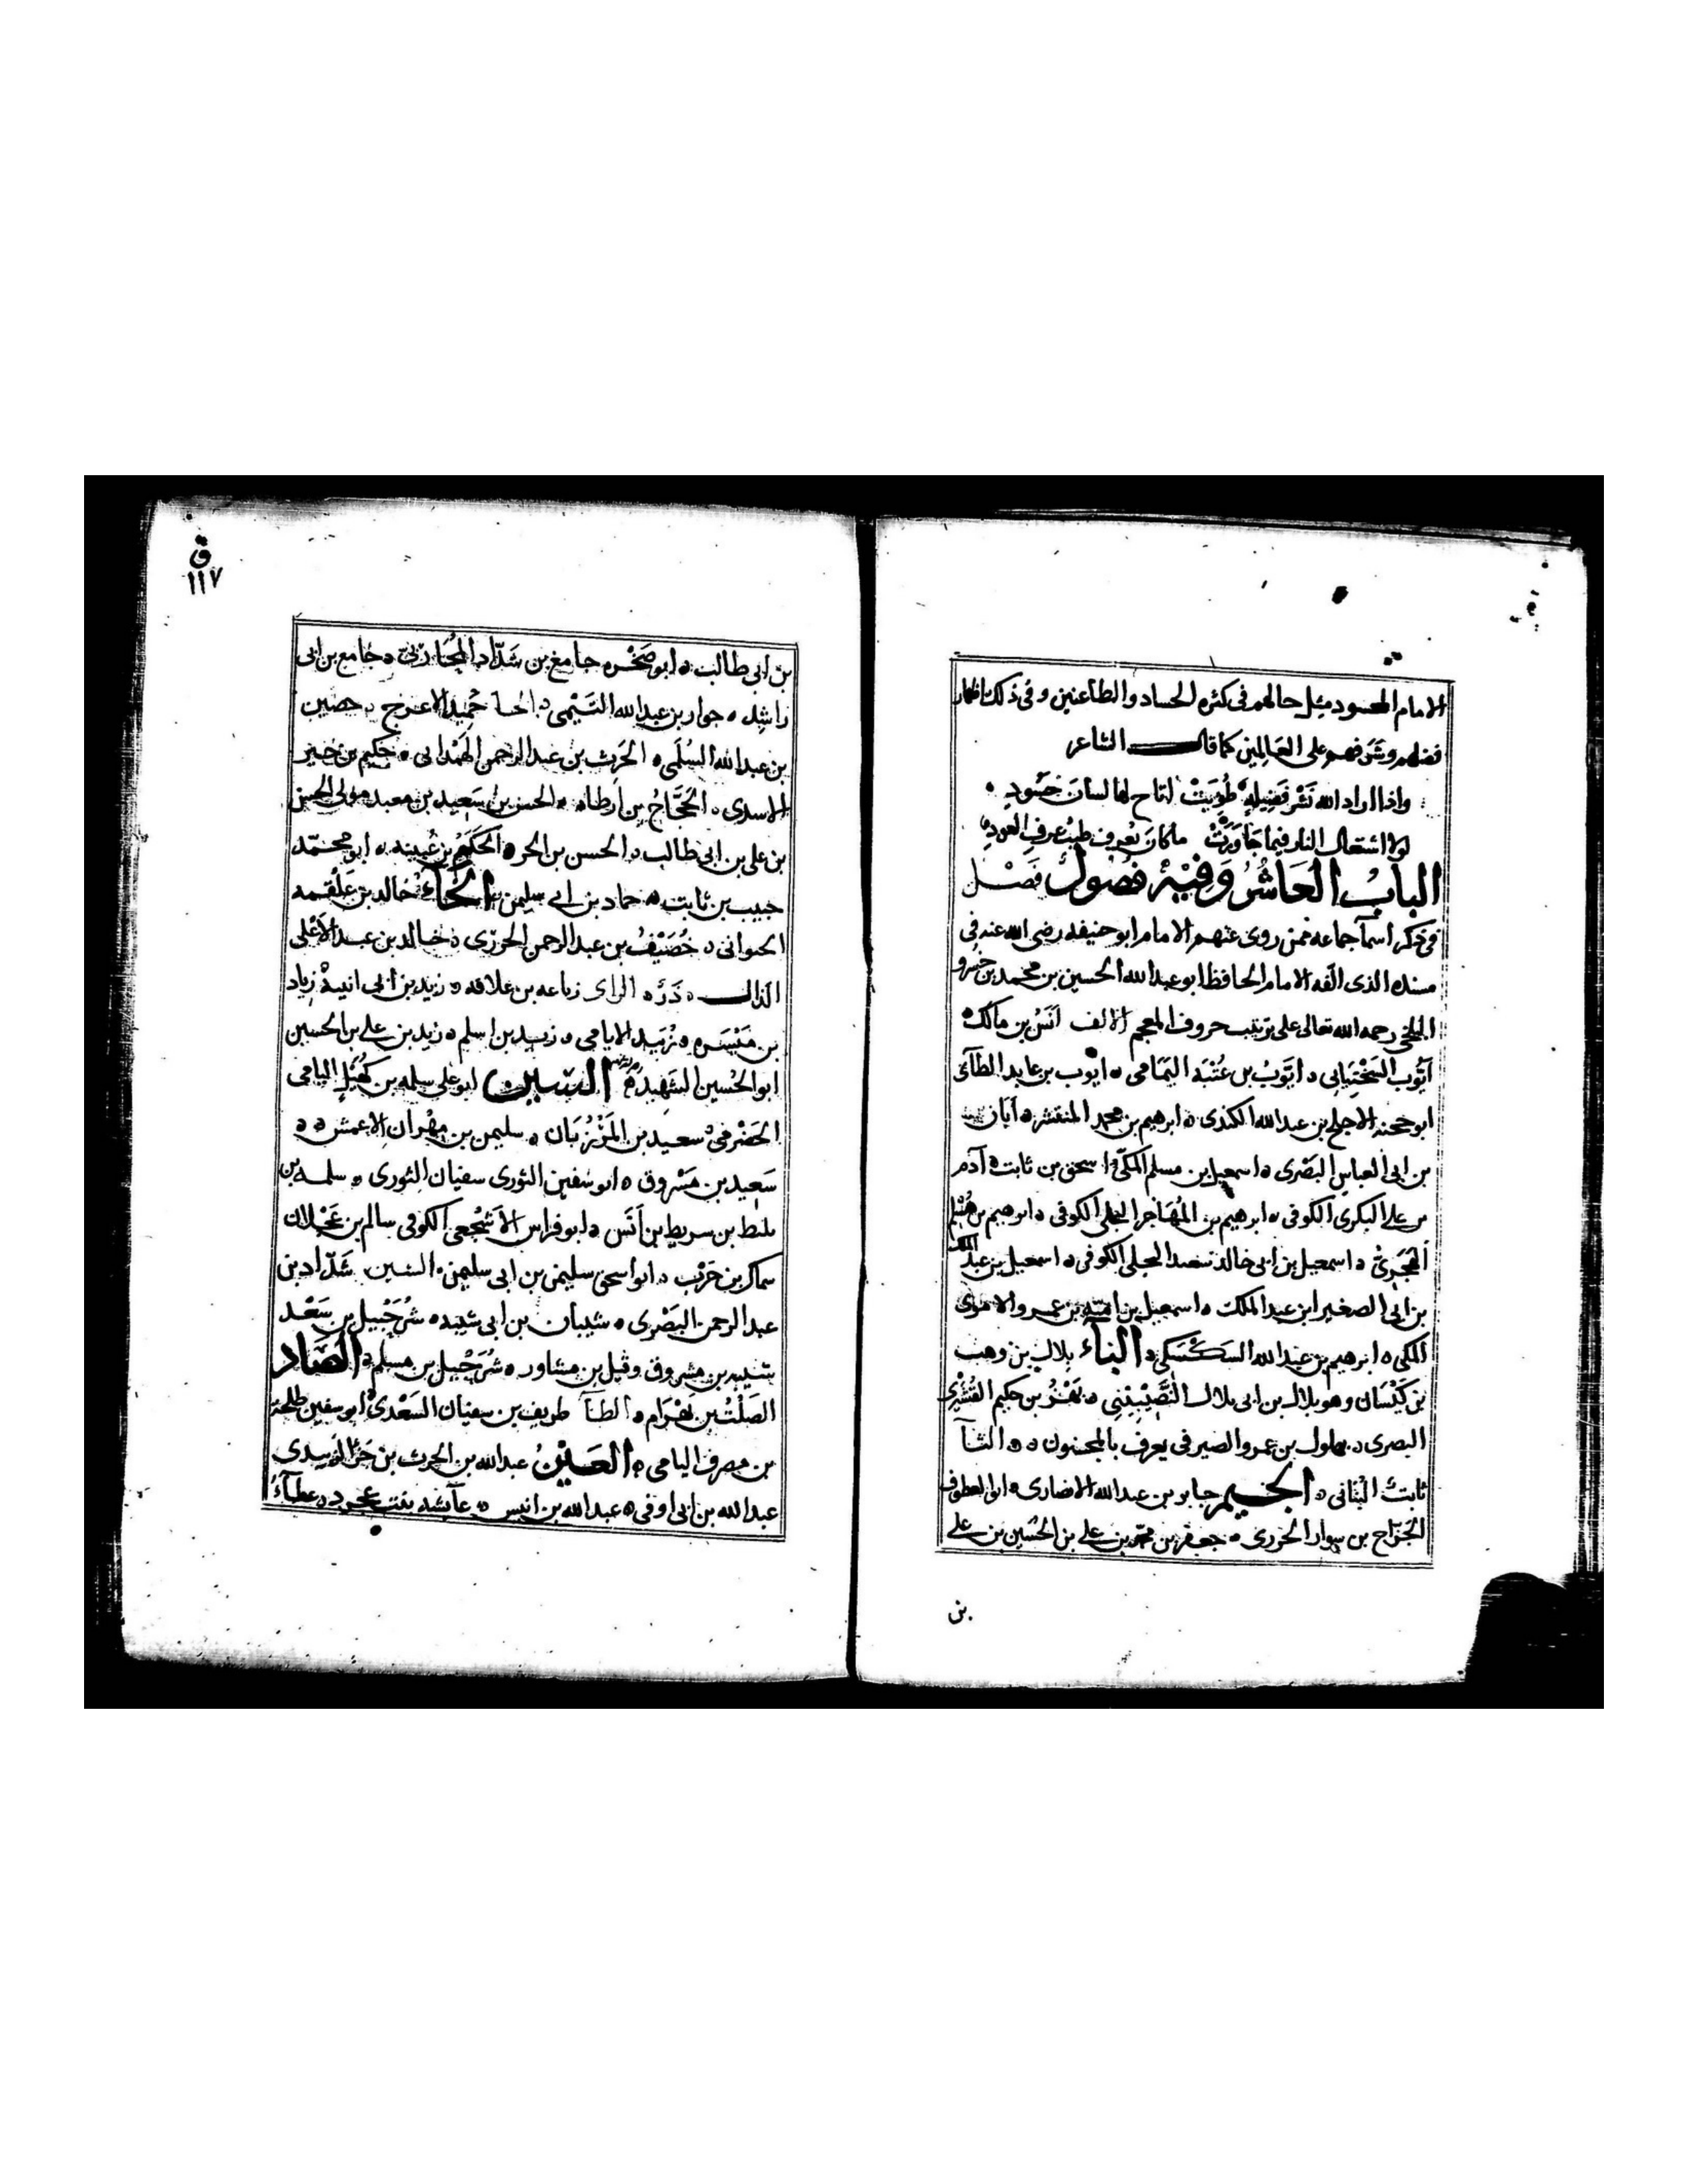 الامام المحسود مثل حالهم فى كثره الحساد والطاعنين وفى ذلك اظهار
فضلهم وشرفهم على العالمين كما قال الشاعر
واذا اراد الله نشر فضيلة طُوِيَتْ اتاح لها لسان حَسُودِ
لولا اشتعال النار فيما جَاوَرَتْ ماكان يُعرف طيبُ عرفِ العودِ
الباب العاشر وفيه فصول فصل
فى ذكر اسمآ جماعه ممن روى عنهم الامام ابوحنيفه رضى الله عنه فى
مسنده الذى الفه الامام الحافظ ابو عبد الله الحسين بن محمد بن خسرو
البلخى رحمه الله تعالى على ترتيب حروف المعجم الالف انَسُ بن مالك
ايّوب السَخْتِيانى ايّوبُ بن عُتْبَة اليَمامى ايوب بن عايد الطآئى
ابو حجيه الاجلح بن عبد الله الكندى ابرهيم بن محمد المنتشر أبان
بن ابى العباس البَصْرى اسمعيل بن مسلم المكّى اسحق بن ثابت آدم
بن على البكرى الكوفى ابرهيم بن المُهَاجر البجلى الكوفى ابرهيم بن مُسْلم
الهَجَرِىّ اسمعيل بن ابى خالد سعد البجلى الكوفى اسمعيل بن عبد الملك
بن ابى الصغير ابن عبد الملك اسمعيل بن اميّه بن عمرو الاموى
المكى ابرهيم بن عبد الله السَكْسَكى البآء بلال بن وهب
بن كَيْسَان وهو بلال بن ابى بلال النَّصِيْبِيْنِى بَهْزُ بن حكيم القُشَيْرى
البصرى بهلول بن عمرو الصيرفى يعرف بالمجنون الثآ
ثابتُ البُنَانى الجيم جابر بن عبد الله الانصارى ابو العطوف
الجَرّاح بن الجزرى جعفر بن محمّد بن على بن الحُسَين بن على
بن
ق
١١٧
بن ابى طالب ابو صَخْره جامعُ بن شَدّاد المُحَارِبى جامع بن ابى
رَاشِد جوار بن عبد الله التَيْمى الحا حُمَيد الاعرج حصين
بن عبد الله السُلَمى الحَرِث بن عبد الرحمن الهَمْدانى حكيم بن جبير
الاسدى الحَجَّاجُ بن ارطاه الحسن بن سَعِيد بن معبد مولى الحسن
بن على بن ابى طالب الحسن بن الحر الحَكَمُ بن عُيينه ابو محمّد
حبيب بن ثابت حماد بن ابى سليمن الخآء خالد بن عَلْقمه
خُصَيْفُ بن عبد الرحمن الجزرى خالد بن عبد الاعْلى
الذال ذَرّ الراى بن علاقه زيد بن ابى انيسة زياد
بن مَيْسَره زُبَيد الايامى زيد بن اسلم زيد بن على بن الحسين
ابو الحُسين الشهيد السين ابو على سلمه بن كُهَيْل اليامى
الحَضْرمى سعيد بن المَرْزُبَان سليمن بن مِهْران الاعمش
سَعِيد بن مَسْروق ابو سُفين الثورى سفيان الثورى سلمه بن
بن انَس ابو فراس الاشجعى الكوفى سالم بن عَجْلان
سماك بن حَرْب ابو اسحق سليمن بن ابى سليمن الشين شَدّاد بن
عبد الرحمن البَصْرى شيبان بن ابى شيبه شُرَحْبيل بن سَعْد
بن وقيل بن مساور شُرَحْبيل بن مسلم الصَاد
الصَلْتُ بن بَهْرَام الطآ طريف بن سفيان السَعْدىّ ابو سفين طلحة
بن مصرف اليامى العَيْنُ عبد الله بن الحرث بن جَزْ الزبيدى
عبد الله بن ابى اوفى عبد الله بن انيس عآيشه بنت عجرد عطآءُ